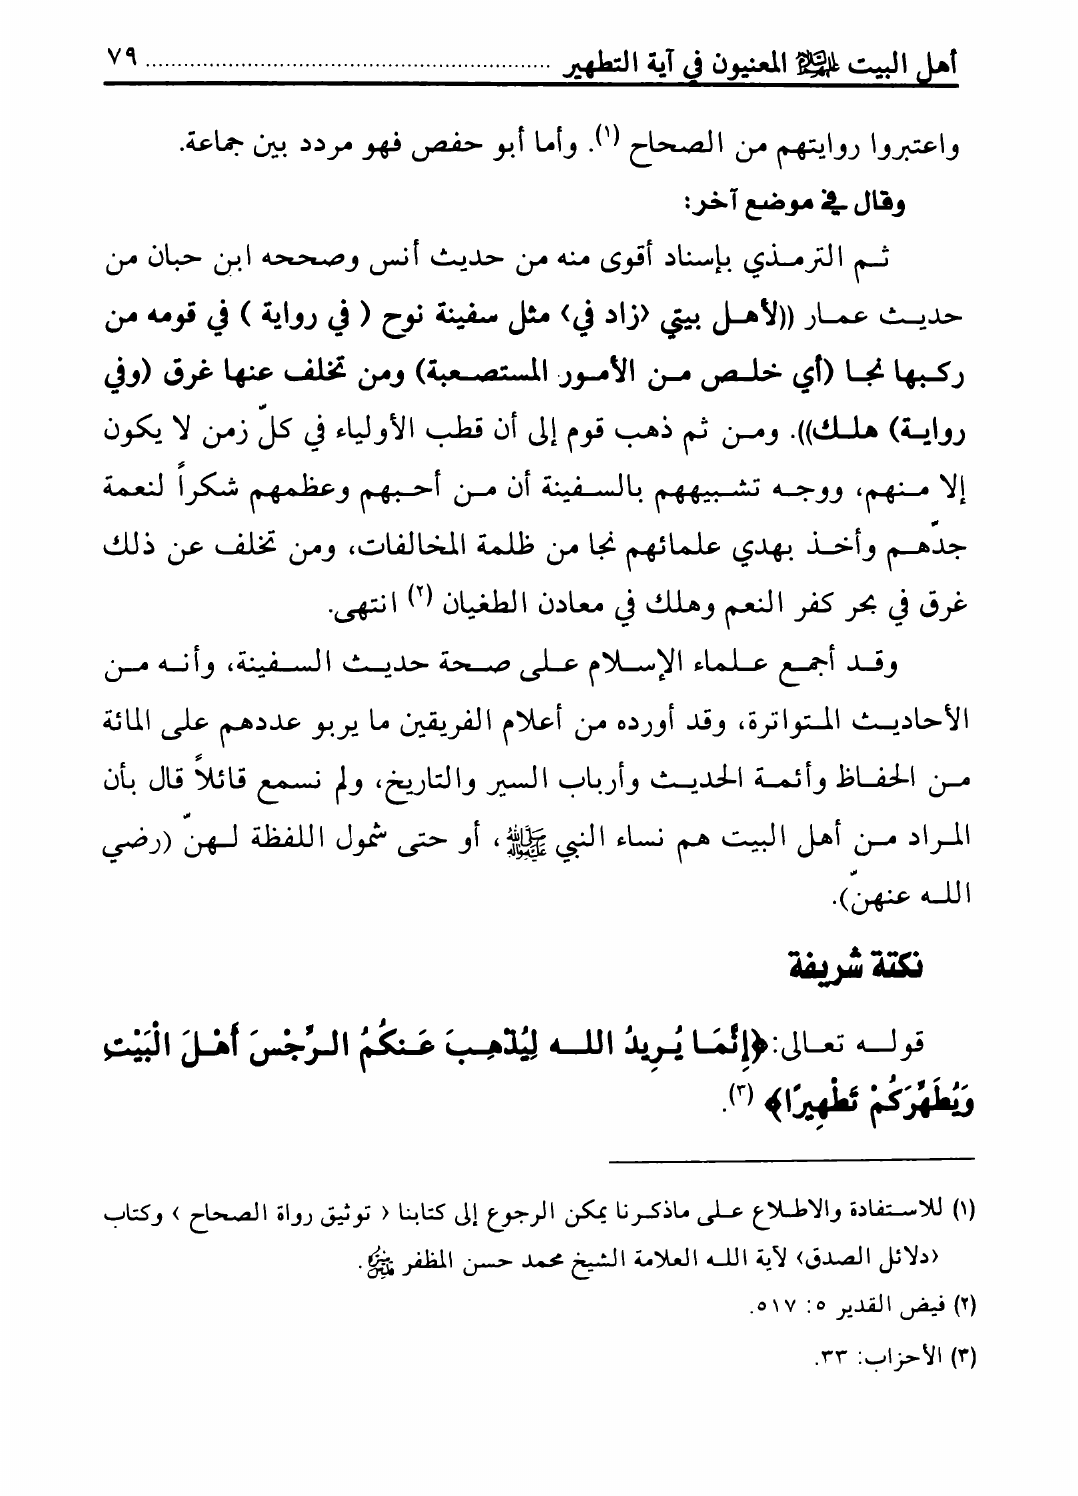 أهل البيت عليهم السلام المعنيون في آية التطهير ................................................................ ٧٩
واعتبروا روايتهم من الصحاح (١). وأما أبو حفص فهو مردد بين جماعة.
وقال في موضع آخر:
ثم الترمذي بإسناد أقوى منه من حديث أنس وصححه ابن حبان من
حديث عمار ((لأهل بيتي ‹زاد في› مثل سفينة نوح ( في رواية ) في قومه من
ركبها نجا (أي خلص من الأمور المستصعبة) ومن تخلف عنها غرق (وفي
رواية) هلك)). ومن ثم ذهب قوم إلى أن قطب الأولياء في كلّ زمن لا يكون
إلا منهم، ووجه تشبيههم بالسفينة أن من أحبهم وعظمهم شكراً لنعمة
جدّهم وأخذ بهدي علمائهم نجا من ظلمة المخالفات، ومن تخلف عن ذلك
غرق في بحر كفر النعم وهلك في معادن الطغيان (٢) انتهى.
وقد أجمع علماء الإسلام على صحة حديث السفينة، وأنه من
الأحاديث المتواترة، وقد أورده من أعلام الفريقين ما يربو عددهم على المائة
من الحفاظ وأئمة الحديث وأرباب السير والتاريخ، ولم نسمع قائلاً قال بأن
المراد من أهل البيت هم نساء النبي ﷺ، أو حتى شمول اللفظة لهنّ (رضي
الله عنهنّ).
نكتة شريفة
قوله تعالى: ﴿إِنَّمَا يُرِيدُ الله لِيُذْهِبَ عَنكُمُ الرِّجْسَ أَهْلَ الْبَيْتِ
وَيُطَهِّرَكُمْ تَطْهِيرًا﴾ (٣).
(١) للاستفادة والاطلاع على ماذكرنا يمكن الرجوع إلى كتابنا ‹ توثيق رواة الصحاح › وكتاب
‹دلائل الصدق› لآية الله العلامة الشيخ محمد حسن المظفر قدس سره.
(٢) فيض القدير ٥: ٥١٧.
(٣) الأحزاب: ٣٣.